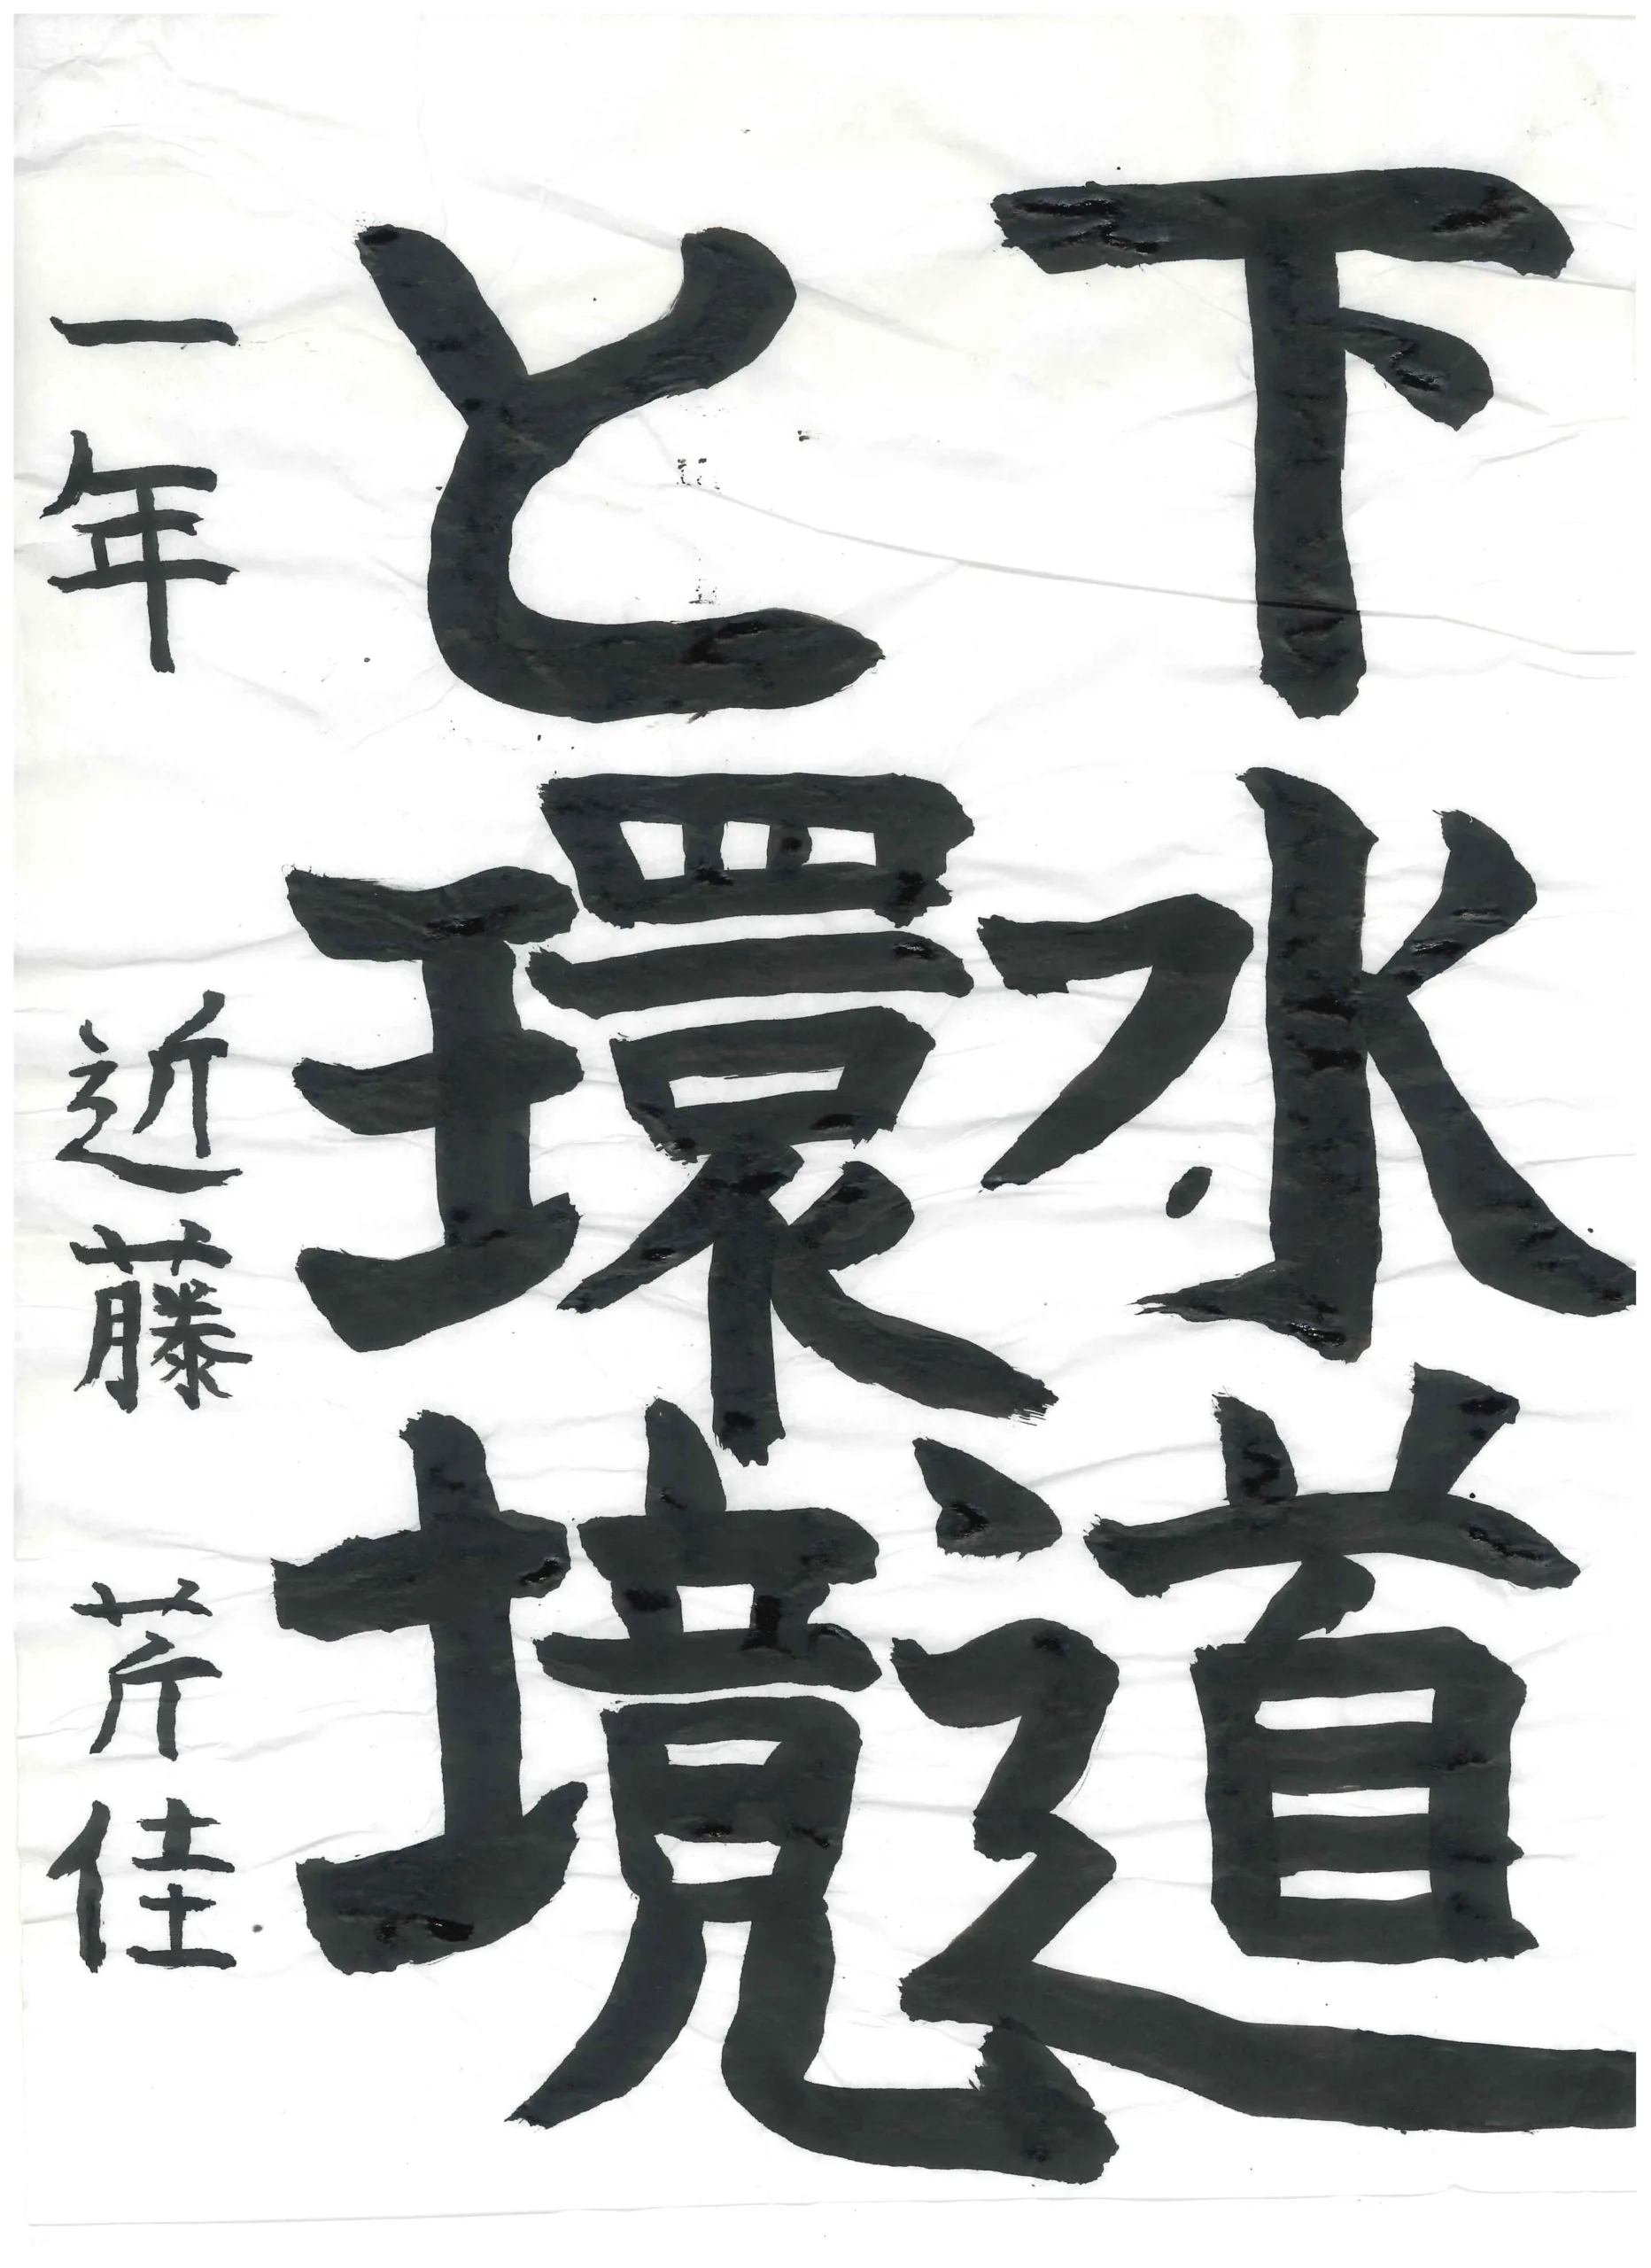 下水道
と環境
一年 近藤 芹佳